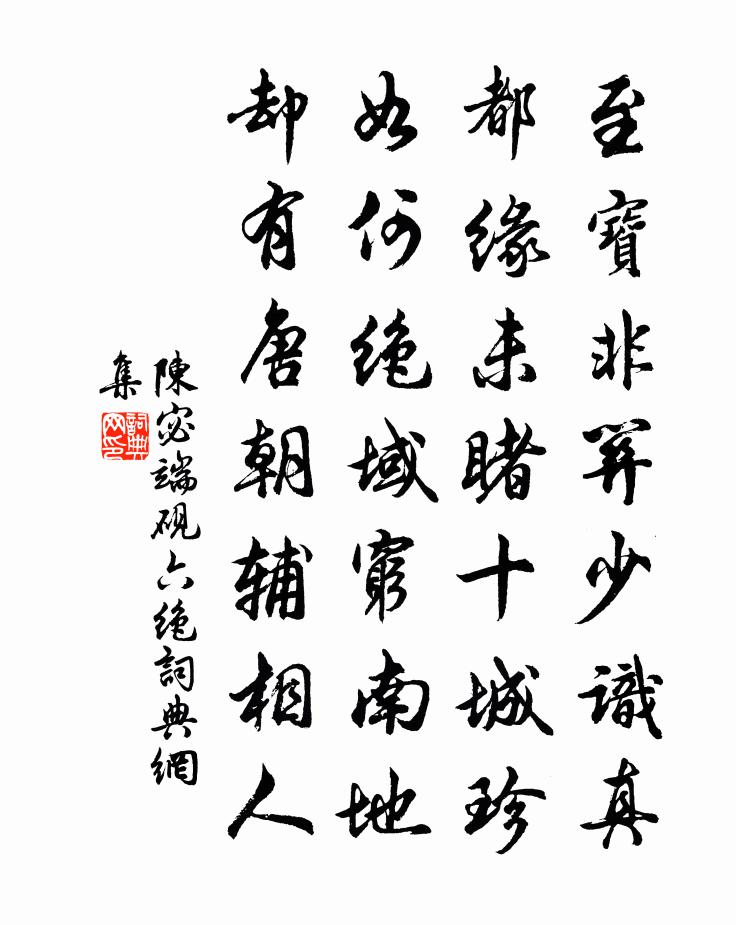 至寶非罕少識真
都緣未睹十城珍
如何絕域窮南地
却有唐朝輔相人
陳宓端硯六絕詞典網
集
詞典
网印